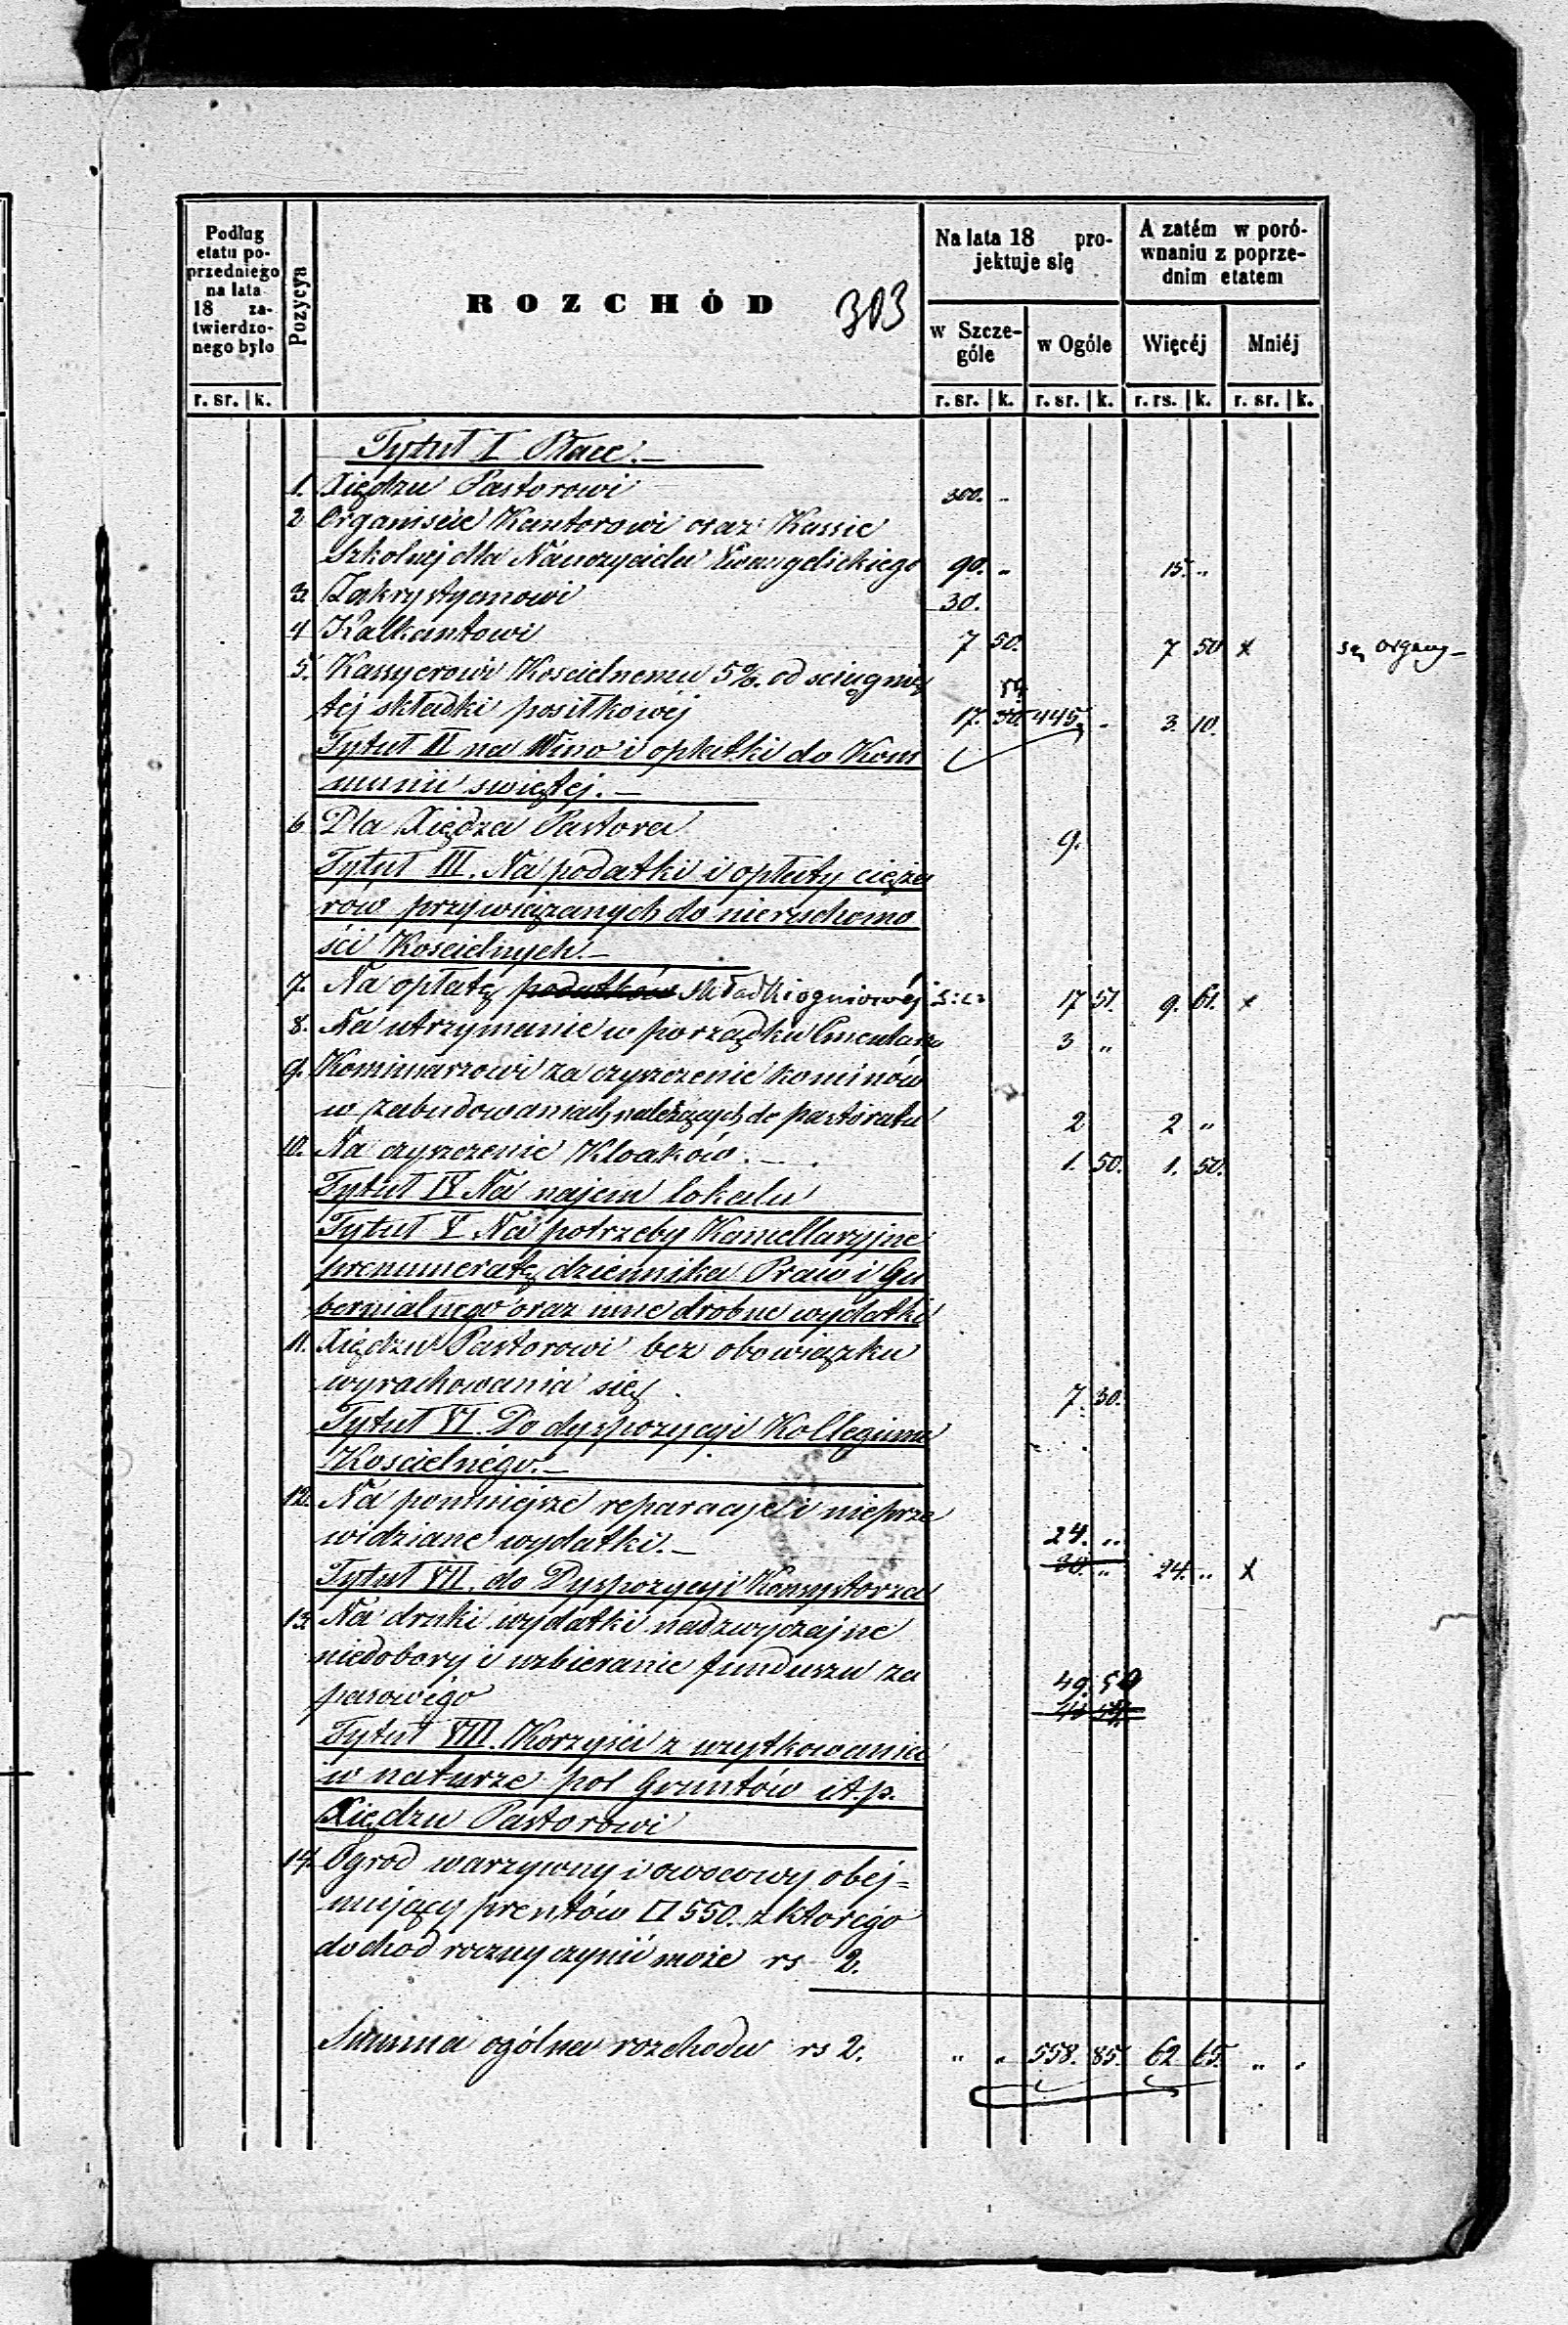 Podług
etatu po-
przedniego
na lata
18 za-
twierdzo-
nego było
Pozycya
ROZCHÓD 303
Na lata 18 pro-
jektuje się
A zatém w poró-
wnaniu z poprze-
dnim etatem
w Szcze-
góle
w Ogóle
Więcéj
Mniéj
r. sr. k. r. sr. k. r. sr. k. r. rs. k. r. sr. k.
Tytuł I Płace.—
1. Xiędzu Pastorowi 300. "
2 Organiście Kantorowi oraz Kassie
Szkolnej dla Nauczyciela Ewangelickiego 90. " 15. "
3. Zakrystyanowi 30.
4 Kalkantowi 7 50. 7 50 x są organy—
5. Kassyerowi Koscielnemu 5%. od sciągnię
tej składki posiłkowéj 17. 50. 445. - 3. 10.
Tytuł II na Wino i opłatki do Kom
munii swiętej.—
6 Dla Xiędza Pastora 9.
Tytuł III. Na podatki i opłaty cięża
row przywiązanych do nieruchomo
ści Koscielnych.—
7. Na opłatę podatków składki ogniowéj 17 51. 9. 61. x
8. Na utrzymanie w porządku Cmentarza 3 "
9. Kominiarzowi za czyszczenie kominów
w zabudowaniach należących do pastoratu 2 2 "
10. Na czyszczenie Kloaków.— 1. 50. 1. 50.
Tytuł IV Na najem lokalu
Tytuł V Na potrzeby Kancellaryjne
prenumeratę dziennika Praw i Gu
bernialnego oraz inne drobne wydatki
11. Xiędzu Pastorowi bez obowiązku
wyrachowania się. 7. 30.
Tytuł VI. Do dyspozycyi Kollegium
Koscielnégo.—
12. Na pomniejsze reparacye i nieprze
widziane wydatki.— 24. "
30. " 24. " x
Tytuł VII. do Dyspozycyi Konsystorza
13. Na druki wydatki nadzwyczajne
niedobory i uzbieranie funduszu za
pasowégo 49. 50
Tytuł VIII. Korzyści z użytkowania
w naturze pol Gruntów i t.p.
Xiędzu Pastorowi
14. Ogrod warzywny i owocowy obej=
mujący prentów □ 550. z ktorégo
dochod roczny czynić może rs 2.
Summa ogólna rozchodu rs 2. " " 558. 85. 62 65. " "